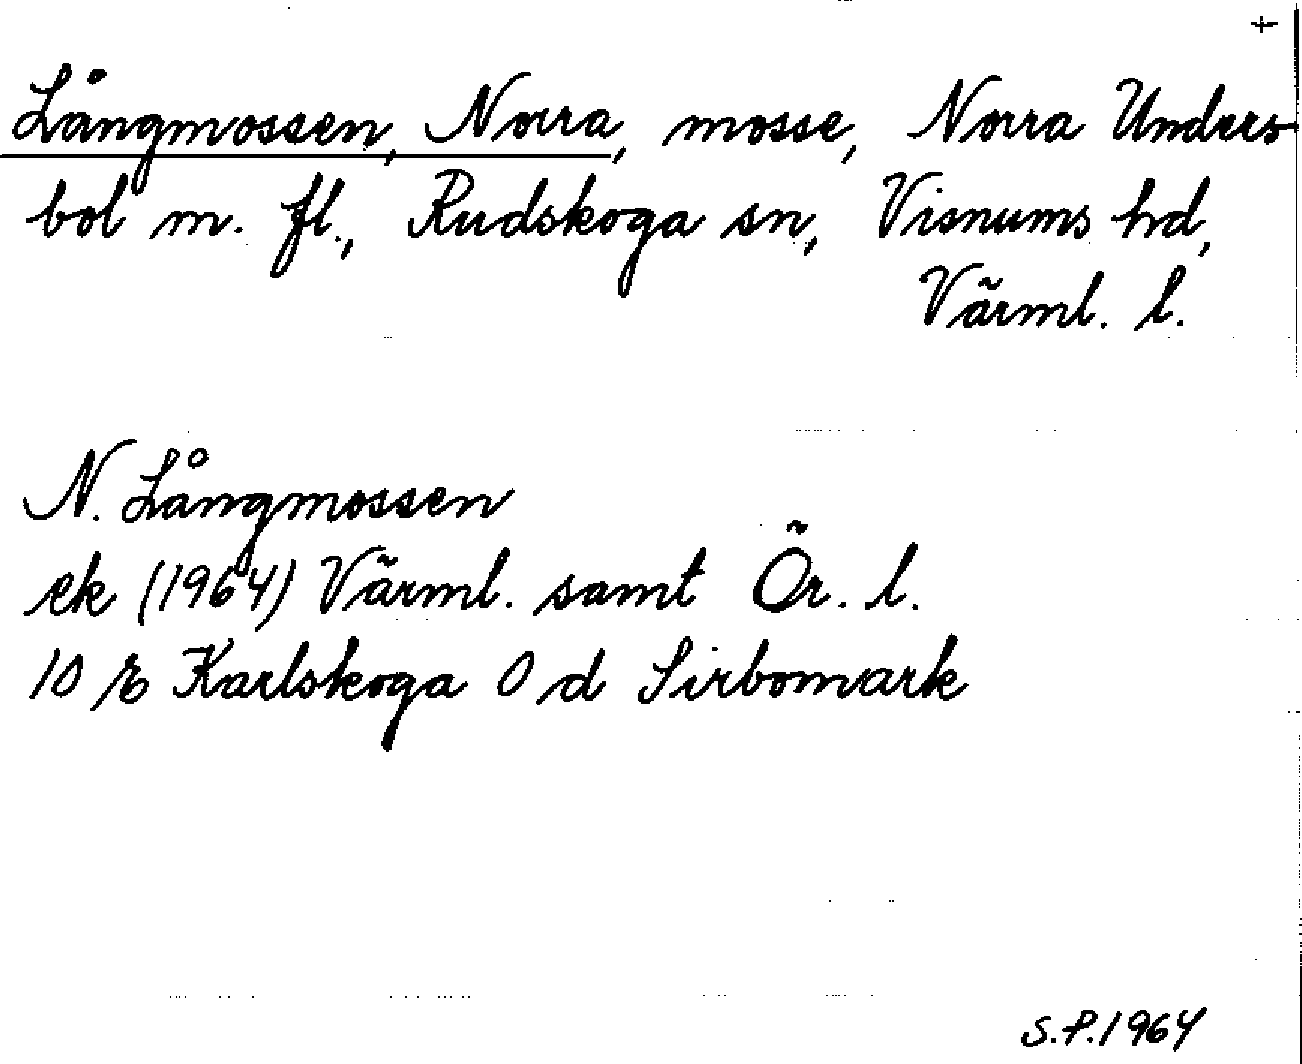 +
Långmossen, Norra, mosse, Norra Unders-
bol m. fl., Rudskoga sn, Visnums hd,
Värml. l.
N. Långmossen
ek (1964) Värml. samt Ör. l.
10 E Karlskoga 0 d Sirbomark
S.P. 1964